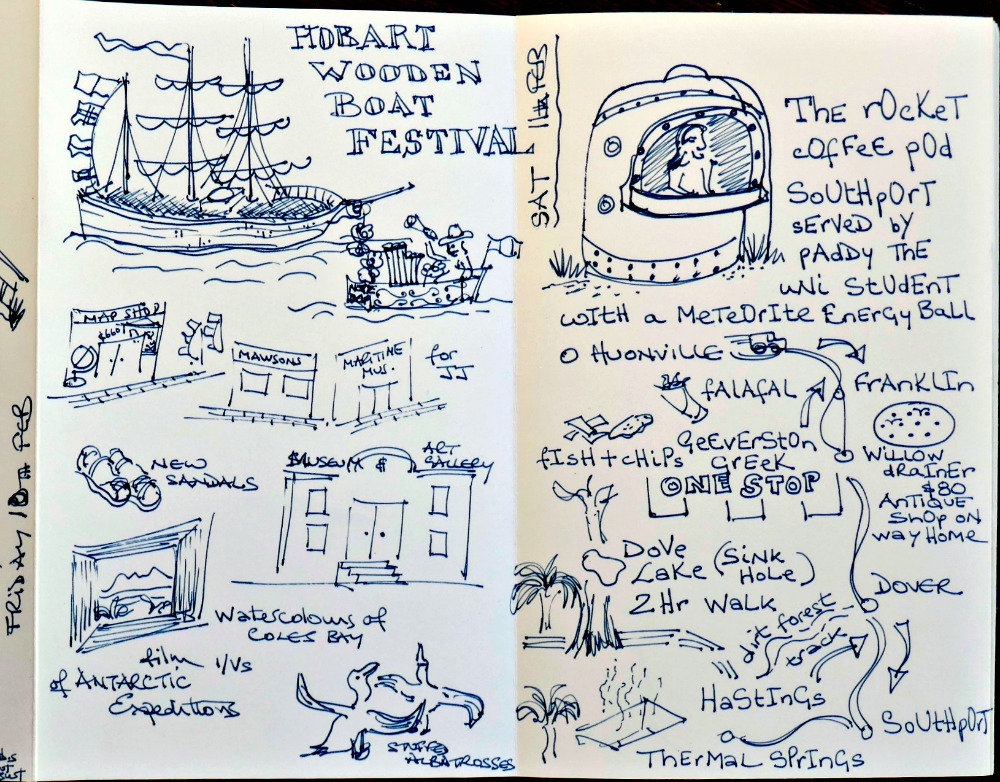 FRIDAY 10TH FEB
HOBART
WOODEN
BOAT
FESTIVAL
MAP SHOP
$660
MAWSONS
MARITIME
MUS.
for
JJ
NEW
SANDALS
MUSEUM &
ART
GALLERY
Watercolours of
COLES BAY
film 1/Vs
of ANTARCTIC
Expeditions
STUFFED
ALBATROSSES
SAT 11th FEB
THE rOcKeT
cOfFeE pOd
SoUtHpOrT
sErVeD by
pAddy THE
uNi StUdENT
wITH a MeTeOrITe EnErGy BaLL
HUONVILLE
FrAnKLIn
fALAfAL
GeEVErStOn
fISH + cHiPs GrEeK
ONE STOP
WILLOW
dRaInEr
$80
AnTiQUE
ShOp oN
way HomE
DoVe
Lake (SiNK
HoLe)
2 Hr WaLK
DOVER
dirt forest
track
HaStInGs
SoUtHpOrT
THErMaL SPrInGs